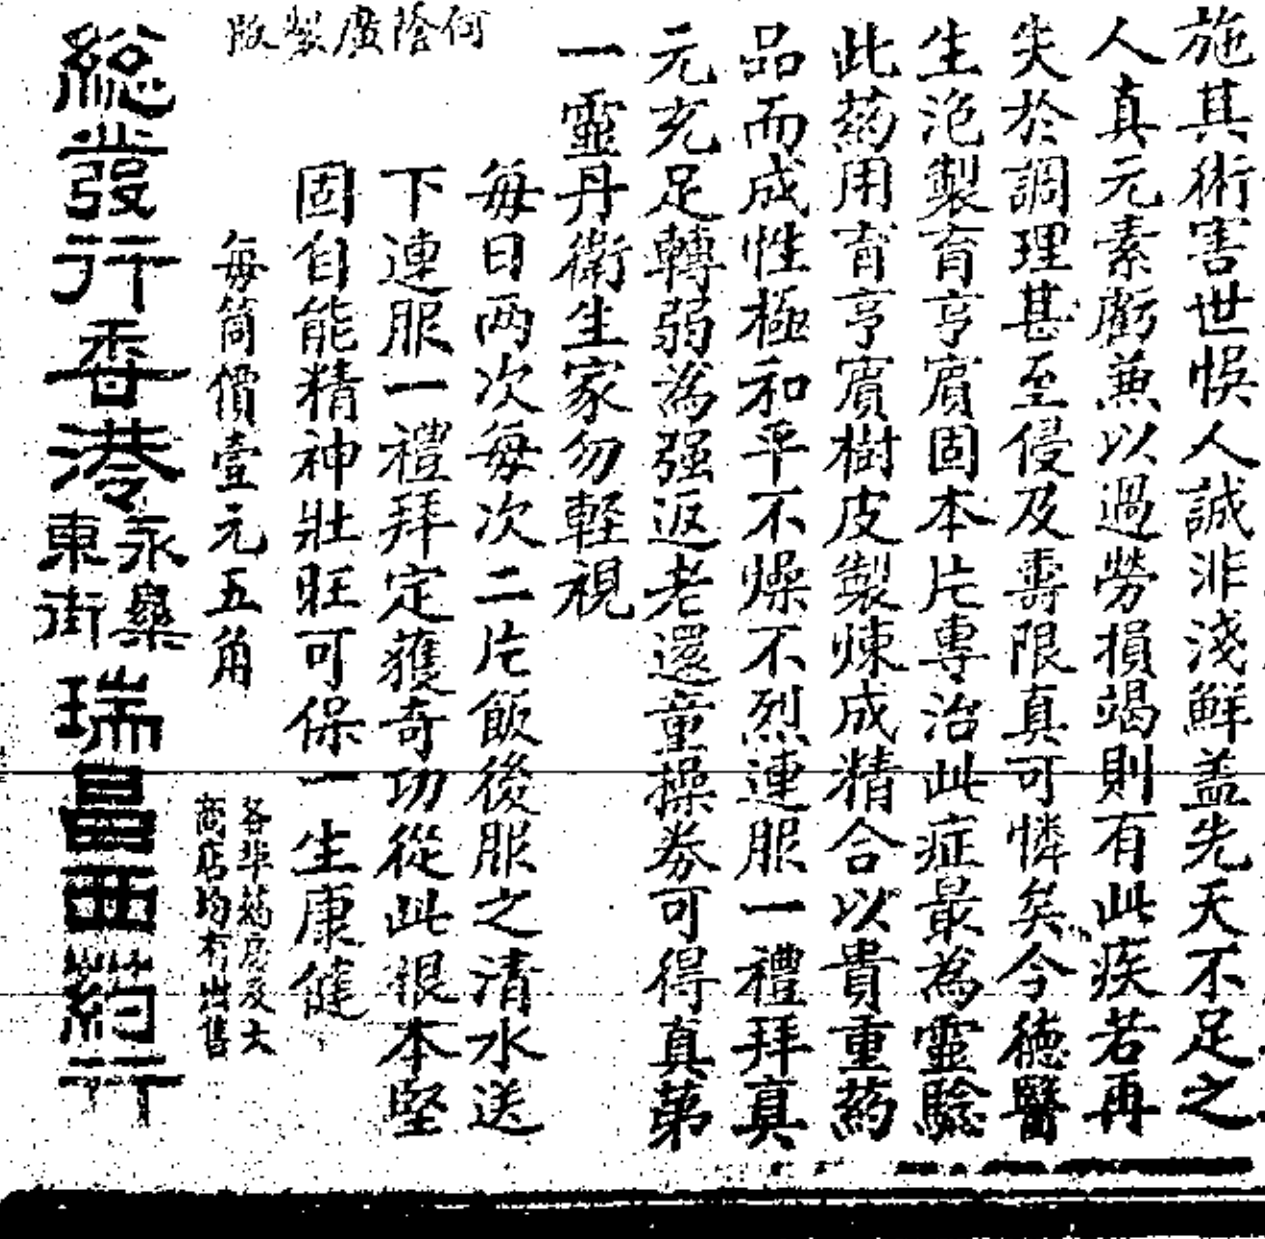 施其術害世悞人誠非淺鮮盖先天不足之
人真元素虧兼以過勞損竭則有此疾若再
失於調理甚至侵及壽限真可憐矣今德醫
生泡製育亨賔固本片專治此症最為靈驗
此葯用育亨賔樹皮製煉成精合以貴重葯
品而成性極和平不燥不烈連服一禮拜真
元充足轉弱為强返老還童操劵可得真第
一靈丹衛生家勿輕視
每日两次每次二片飯後服之清水送
下連服一禮拜定獲奇功從此根本堅
固自能精神壯旺可保一生康健
每筒價壹元五角
各埠葯房及大
商店均有出售
何蔭廣製版
総發行香港
永樂
東街
瑞昌西葯行